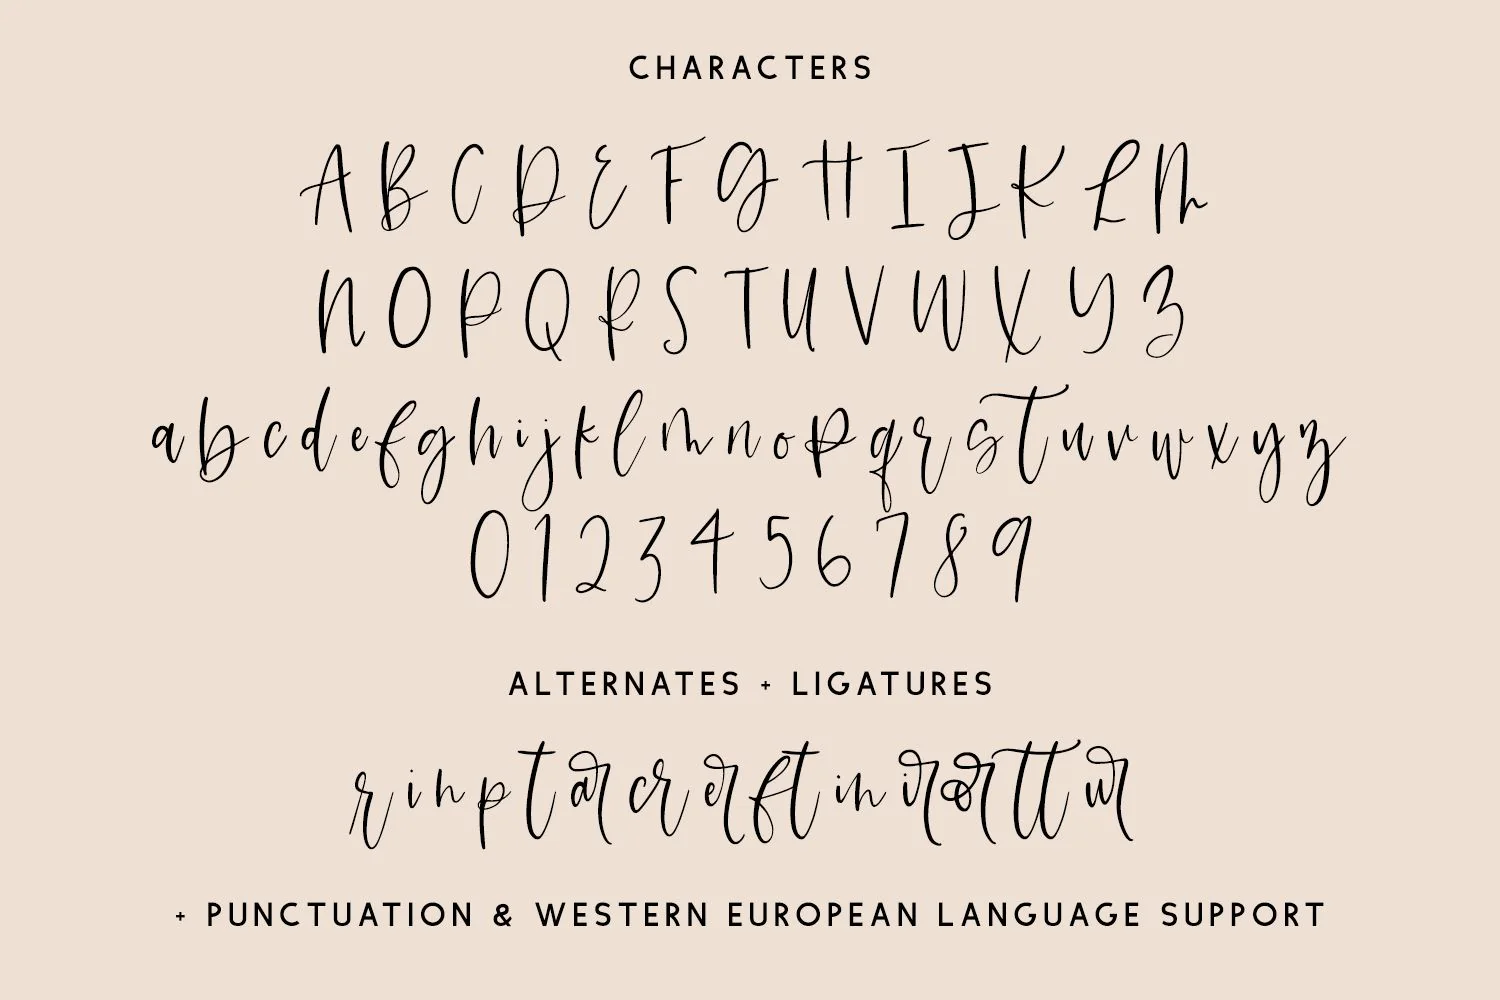 CHARACTERS
ABCDEFGHIJKLM
NOPQRSTUVWXYZ
abcdefghijklmnopqrstuvwxyz
0123456789
ALTERNATES + LIGATURES
r i n p t ar cr er ft in ir or tt ur
+ PUNCTUATION & WESTERN EUROPEAN LANGUAGE SUPPORT